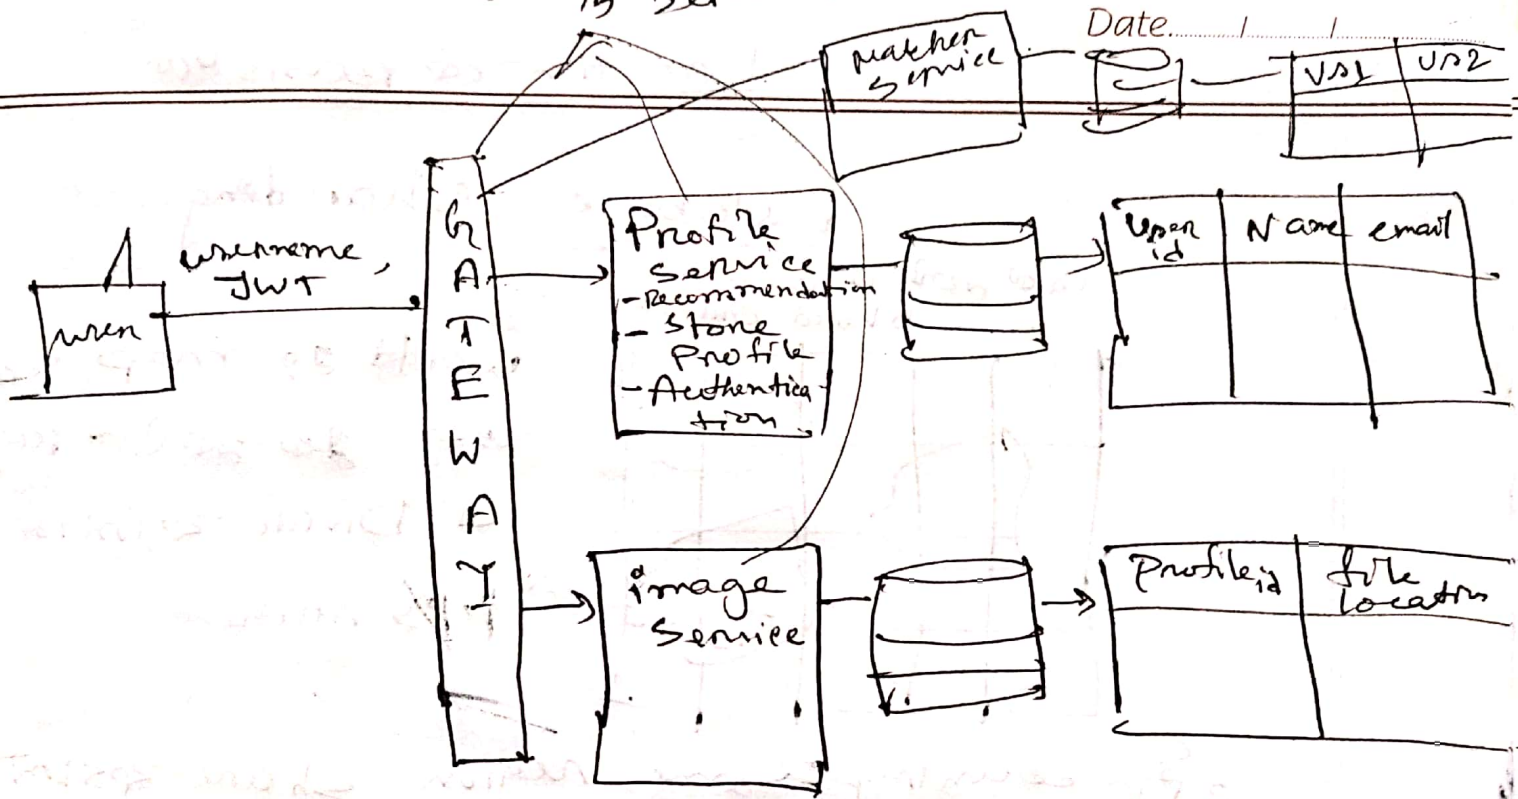 Date
Matcher
Service
US1 US2
username,
JWT
user
GATEWAY
Profile
Service
- Recommendation
- Store
Profile
- Authentica
tion
User
id
Name
email
image
Service
Profile id
file
Location